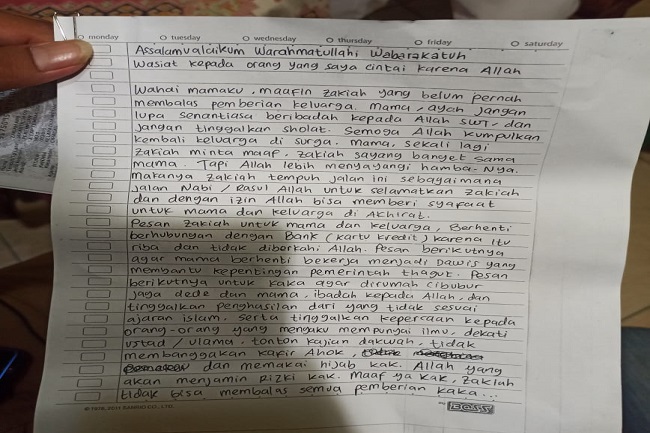 monday tuesday wednesday thursday friday saturday
Assalamualaikum Warahmatullahi Wabarakatuh
Wasiat kepada orang yang saya cintai karena Allah
Wahai mamaku, maafin zakiah yang belum pernah
membalas pemberian keluarga. Mama, ayah jangan
lupa senantiasa beribadah kepada Allah SWT. dan
jangan tinggalkan sholat. Semoga Allah kumpulkan
kembali keluarga di surga. mama, sekali lagi
zakiah minta maaf. zakiah sayang banget sama
mama. Tapi Allah lebih menyayangi hamba-Nya.
makanya zakiah tempuh jalan ini sebagaimana
jalan Nabi / Rasul Allah untuk selamatkan zakiah
dan dengan izin Allah bisa memberi syafaat
untuk mama dan keluarga di Akhirat.
Pesan zakiah untuk mama dan keluarga, Berhenti
berhubungan dengan Bank (kartu kredit) karena itu
riba dan tidak diberkahi Allah. Pesan berikutnya
agar mama berhenti bekerja menjadi Dawis yang
membantu kepentingan pemerintah thagut. Pesan
berikutnya untuk kaka agar dirumah cibubur
jaga dede dan mama, ibadah kepada Allah, dan
tinggalkan penghasilan dari yang tidak sesuai
ajaran islam. serta tinggalkan kepercaan kepada
orang-orang yang mengaku mempunyai ilmu, dekati
ustad / ulama, tonton kajian dakwah, tidak
membanggakan kafir Ahok,
dan memakai hijab kak. Allah yang
akan menjamin Rizki kak. Maaf ya kak, zakiah
tidak bisa membalas semua pemberian kaka...
BOSS